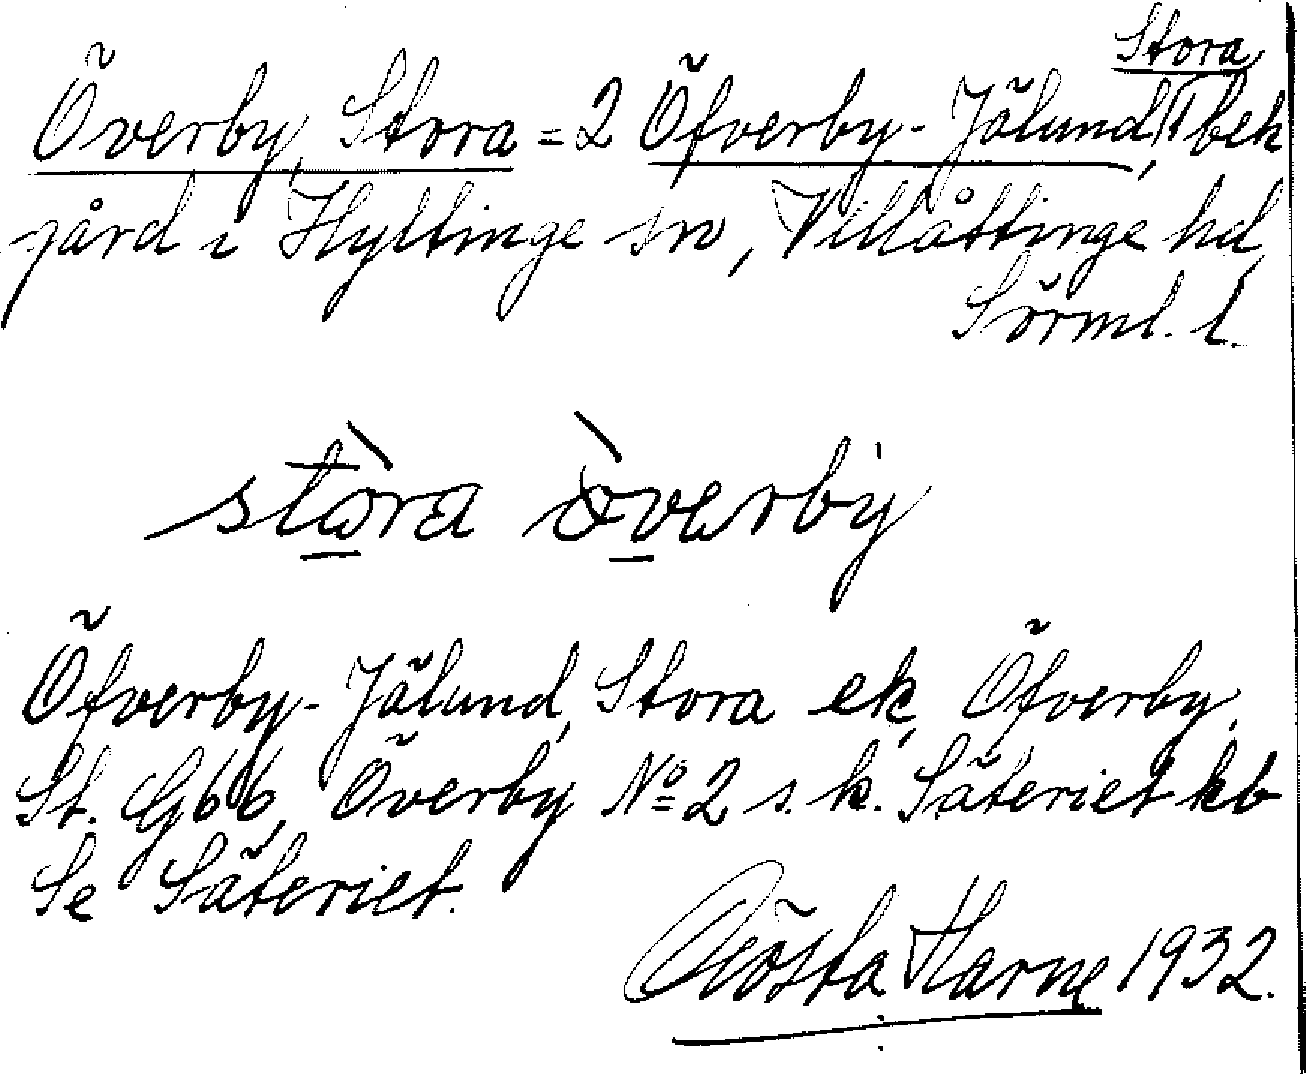 Stora
Överby, Stora = 2 Öfverby-Jälund, bek
gård i Hyltinge sn, Villåttinge hd,
Sörml. l.
stòra òverby
Öfverby-Jälund, Stora ek, Öfverby,
St. G66, Överby No 2 s.k. Säteriet kb
Se Säteriet.
Gösta Harne 1932.